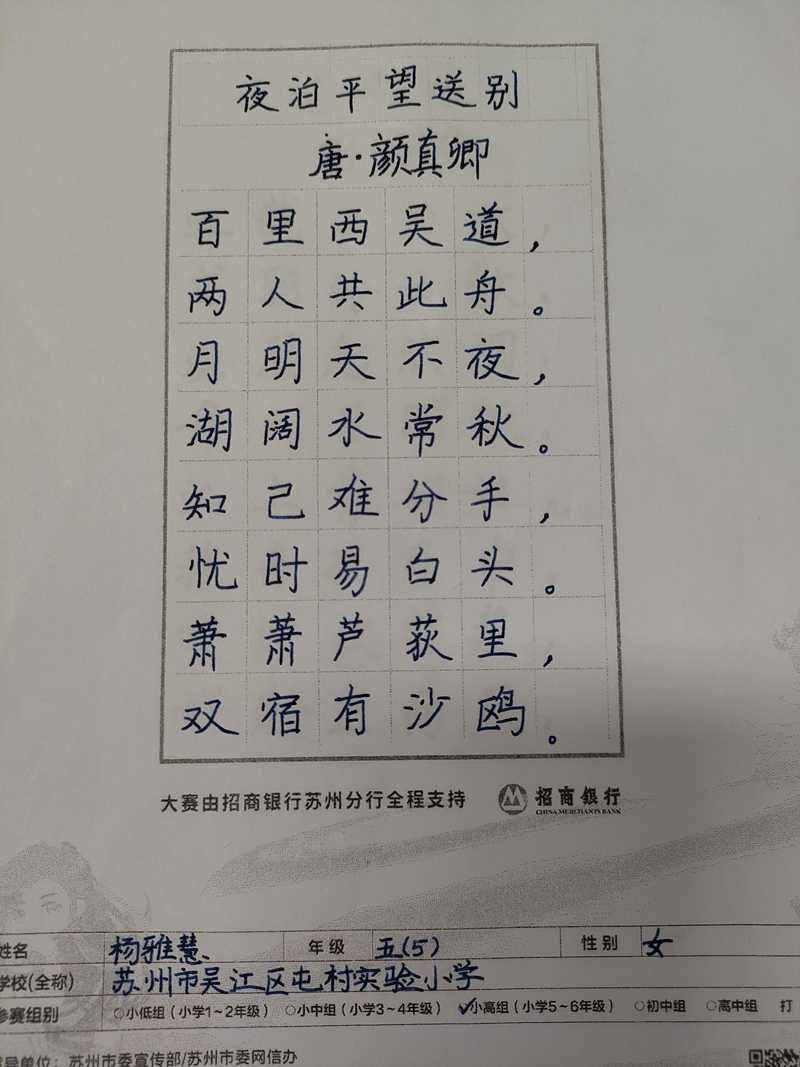 夜泊平望送别
唐·颜真卿
百里西吴道，
两人共此舟。
月明天不夜，
湖阔水常秋。
知己难分手，
忧时易白头。
萧萧芦荻里，
双宿有沙鸥。
大赛由招商银行苏州分行全程支持
招商银行
CHINA MERCHANTS BANK
姓名 杨雅慧 年级 五(5) 性别 女
学校(全称) 苏州市吴江区屯村实验小学
参赛组别 ○小低组（小学1~2年级） ○小中组（小学3~4年级） ✓小高组（小学5~6年级） ○初中组 ○高中组 打
导单位：苏州市委宣传部/苏州市委网信办